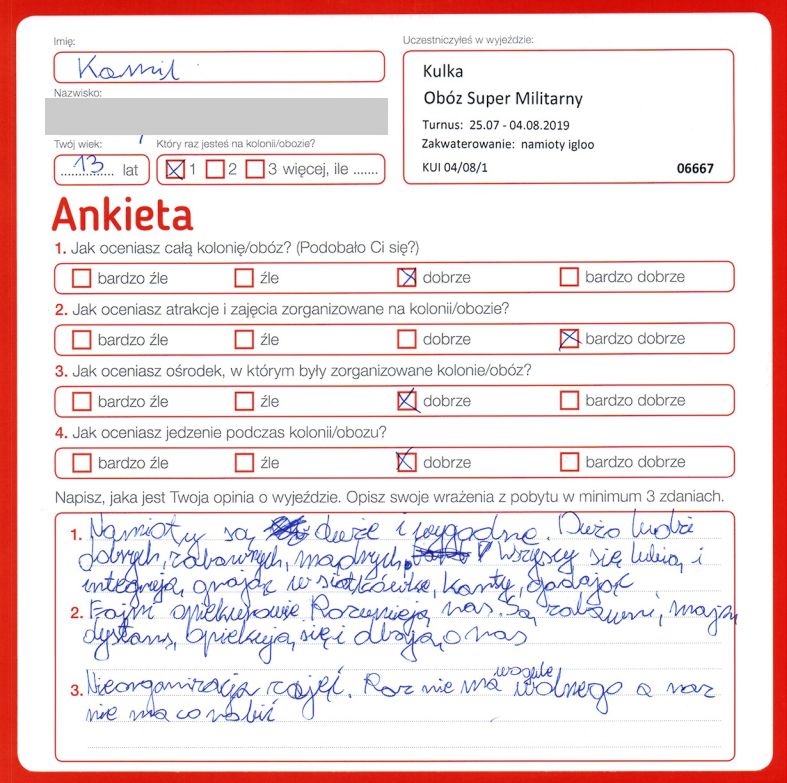 Imię:
Kamil
Nazwisko:
Twój wiek:
13 lat
Który raz jesteś na kolonii/obozie?
1 2 3 więcej, ile .......
Uczestniczyłeś w wyjeździe:
Kulka
Obóz Super Militarny
Turnus: 25.07 - 04.08.2019
Zakwaterowanie: namioty igloo
KUI 04/08/1 06667
Ankieta
1. Jak oceniasz całą kolonię/obóz? (Podobało Ci się?)
bardzo źle źle dobrze bardzo dobrze
2. Jak oceniasz atrakcje i zajęcia zorganizowane na kolonii/obozie?
bardzo źle źle dobrze bardzo dobrze
3. Jak oceniasz ośrodek, w którym były zorganizowane kolonie/obóz?
bardzo źle źle dobrze bardzo dobrze
4. Jak oceniasz jedzenie podczas kolonii/obozu?
bardzo źle źle dobrze bardzo dobrze
Napisz, jaka jest Twoja opinia o wyjeździe. Opisz swoje wrażenia z pobytu w minimum 3 zdaniach.
1. Namioty są duże i wygodne. Dużo ludzi
dobrych, zabawnych, mądrych. Wszyscy się lubią i
integrują, grając w siatkówkę, karty, gadając
2. Fajni opiekunowie. Rozumieją nas. Są zabawni, mają
dystans, opiekują się i dbają o nas
3. Nieorganizacja zajęć. Raz nie ma wogóle wolnego a raz
nie ma co robić